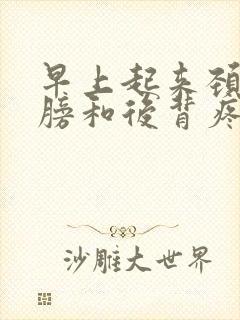 早上起来颈
膀和後背疼
沙雕大世界